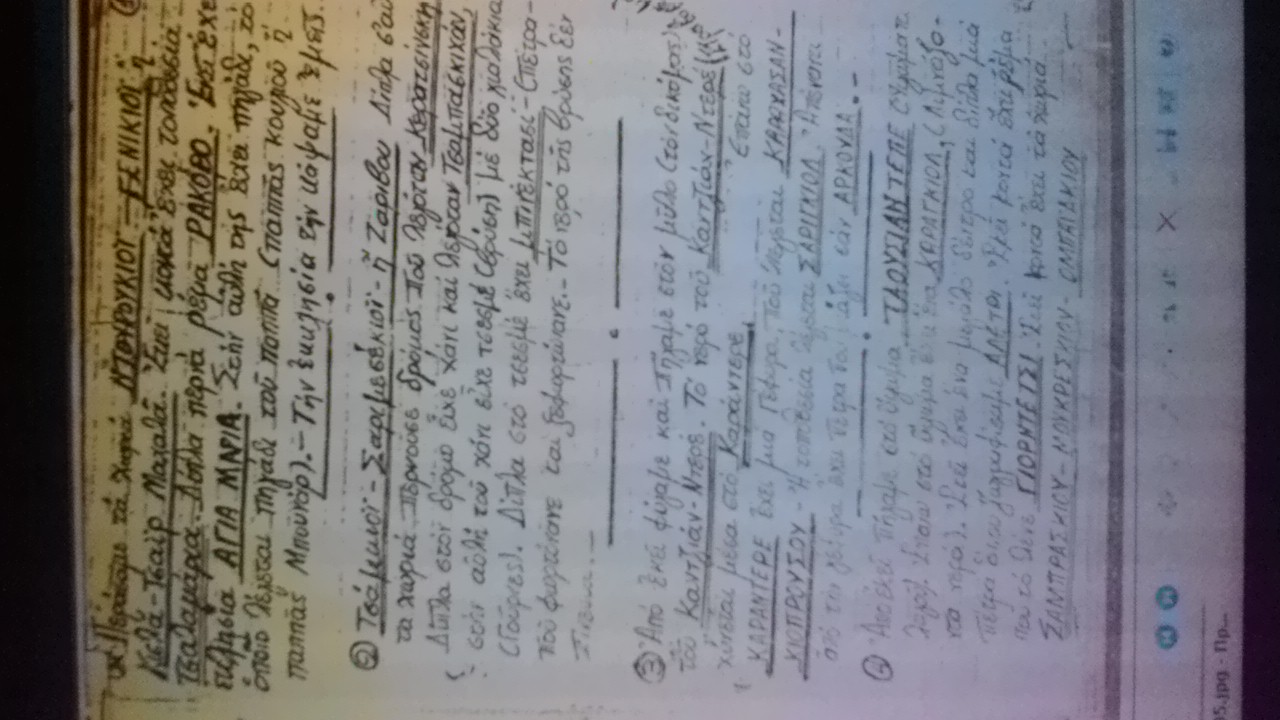 Περάσαμε τά χωριά ΝΤΟΥΡΟΥΚΙΟΪ - ΓΕΝΙΚΙΟΪ ἤ
Κελᾶ-Τσαΐρ Μαχαλᾶ. Ἐκεῖ κοντά ἔχει τοποθεσία
Τσαλαμάρια. Δίπλα περνᾶ ρέμα ΡΑΚΟΒΟ. Ἐκεῖ ἔχει
ἐκκλησία ΑΓΙΑ ΜΑΡΙΑ. Στήν αὐλή της ἔχει πηγάδι, τό
ὁποῖο λέγεται πηγάδι τοῦ παππᾶ (παππᾶς κουγιοῦ ἤ
παππᾶς Μπουνάρ).- Τήν ἐκκλησία τήν κάψαμε ἐμεῖς.
② Τσάμκιοϊ - Σαριμεσέκιοϊ - ἤ Ζαρίβου Δίπλα σ'αὐ
τα χωριά περνοῦσε δρόμος πού λεγόταν Κερατσίνσκη
Δίπλα στόν δρόμο εἶχε χάνι καί λεγόταν Τσαμπασκιχάν,
στήν αὐλή τοῦ χάνι εἶχε τσεσμέ (βρύση) μέ δύο γιαλάκια
(Γοῦρνες). Δίπλα στό τσεσμέ ἔχει μπινέκτασί - (πέτρα -
πού φωρτώνανε καί ξεφωρτώνανε.- Τό νερό τῆς βρύσης δέν
③ Ἀπό ἐκεῖ φύγαμε καί πήγαμε στόν μῦλο (τόν δικό μας)
τοῦ Καντζιάν-Ντερέ. Τό νερό τοῦ Καντζιάν-Ντερέ
χύνεται μέσα στό Καράντερε. Ἐπάνω στό
ΚΑΡΑΝΤΕΡΕ ἔχει μιά γέφυρα, πού λέγεται ΚΑΡΑΧΑΣΑΝ-
ΚΙΟΠΡΟΥΣΟΥ - Ἡ τοποθεσία λέγεται ΣΑΡΙΓΚΙΟΛ. Ἀπέναντι
ἀπό τήν γέφυρα ἔχει πέτρα πού μοιάζει σάν ΑΡΚΟΥΔΑ.-
④ Ἀπό ἐκεῖ πήγαμε στό ὕψωμα ΤΑΟΥΣΙΑΝ ΤΕΠΕ (ὑψωματ.
λαγοῦ). Ἐπάνω στό ὕψωμα ἔχει ἕνα ΚΑΡΑΓΚΙΟΛ, (Λιμνάζο-
ντα νερά). Ἐκεῖ ἔχει ἕνα μεγάλο δέντρο καί δίπλα μιά
πέτρα ὅπου ζωγραφίσαμε ΑΛΕΤΡΙ. Ἐκεῖ κοντά ἔχει ρέμα
πού τό λένε ΓΙΟΡΝΤΕΤΣΙ. Ἐκεῖ κοντά ἔχει τά χωριά
ΣΑΜΠΡΑΣΚΙΟΥ - ΜΟΥΚΡΕΣΚΙΟΥ - ΟΜΠΑΓΑΚΙΟΥ